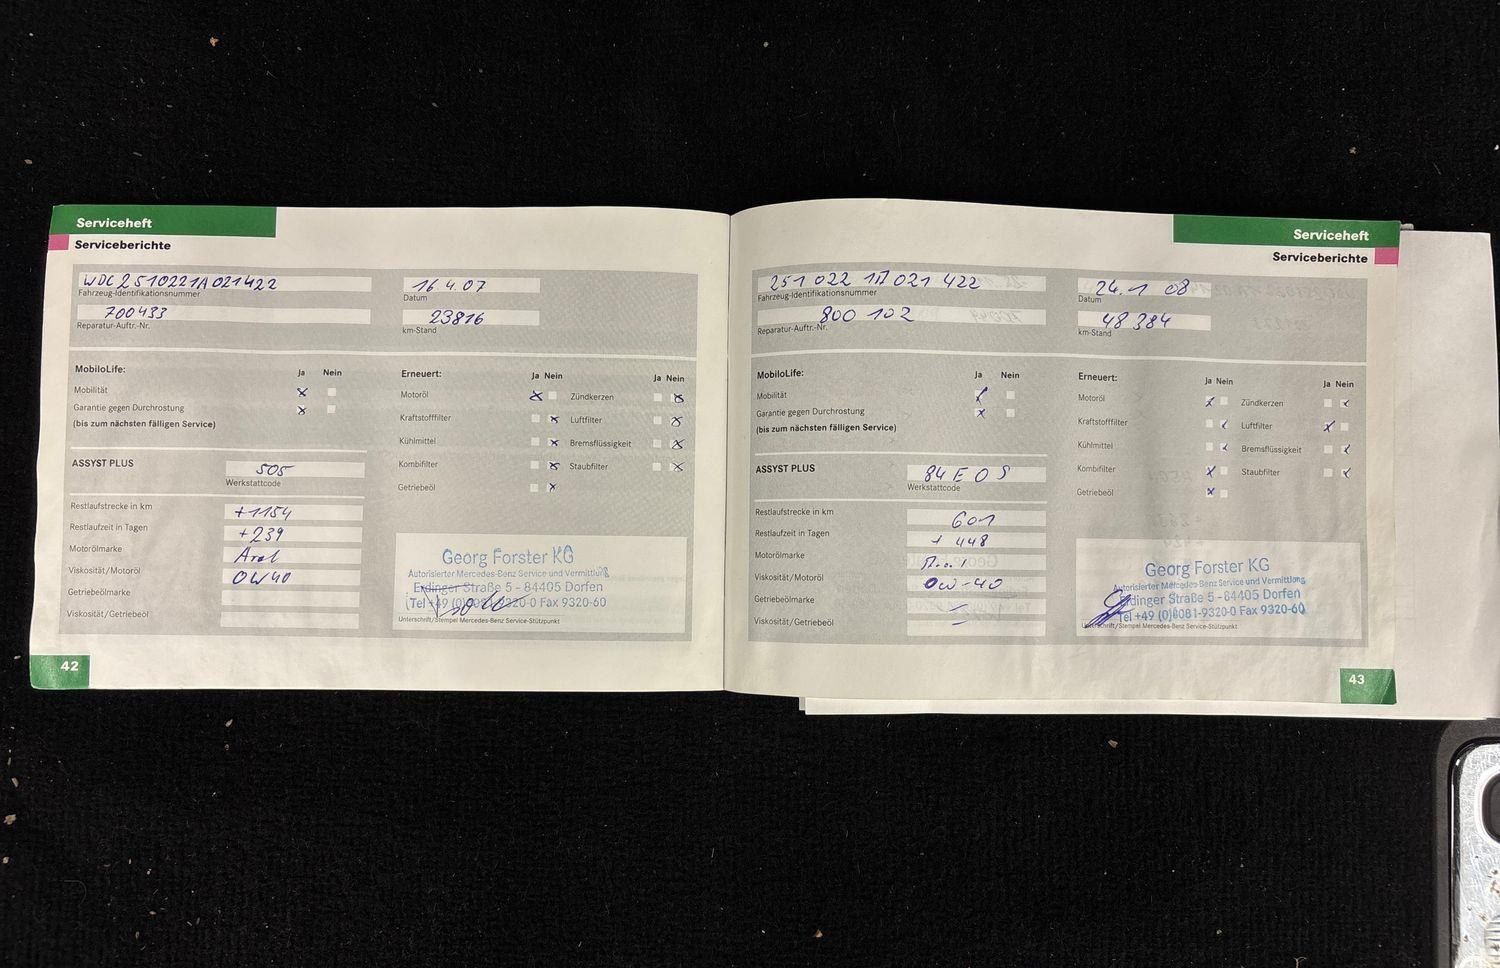 Serviceheft
Serviceberichte
WDC2510221A021422
Fahrzeug-Identifikationsnummer
16 4.07
Datum
700433
Reparatur-Auftr.-Nr.
23816
km-Stand
MobiloLife:
Ja Nein
Mobilität
Garantie gegen Durchrostung
(bis zum nächsten fälligen Service)
Erneuert:
Ja Nein
Ja Nein
Motoröl
Zündkerzen
Kraftstofffilter
Luftfilter
Kühlmittel
Bremsflüssigkeit
Kombifilter
Staubfilter
Getriebeöl
ASSYST PLUS
505
Werkstattcode
Restlaufstrecke in km
+1154
Restlaufzeit in Tagen
+239
Motorölmarke
Aral
Viskosität/Motoröl
0W40
Getriebeölmarke
Viskosität/Getriebeöl
Georg Forster KG
Autorisierter Mercedes-Benz Service und Vermittlung
Erdinger Straße 5 - 84405 Dorfen
Tel +49 (0)8081-9320-0 Fax 9320-60
Unterschrift/Stempel Mercedes-Benz Service-Stützpunkt
42
Serviceheft
Serviceberichte
251 022 1A 021 422
Fahrzeug-Identifikationsnummer
24.1 08
Datum
800 102
Reparatur-Auftr.-Nr.
48 384
km-Stand
MobiloLife:
Ja Nein
Mobilität
Garantie gegen Durchrostung
(bis zum nächsten fälligen Service)
Erneuert:
Ja Nein
Ja Nein
Motoröl
Zündkerzen
Kraftstofffilter
Luftfilter
Kühlmittel
Bremsflüssigkeit
Kombifilter
Staubfilter
Getriebeöl
ASSYST PLUS
84 E 0 S
Werkstattcode
Restlaufstrecke in km
601
Restlaufzeit in Tagen
+ 448
Motorölmarke
Viskosität/Motoröl
0W-40
Getriebeölmarke
Viskosität/Getriebeöl
Georg Forster KG
Autorisierter Mercedes-Benz Service und Vermittlung
Erdinger Straße 5 - 84405 Dorfen
Tel +49 (0)8081-9320-0 Fax 9320-60
Unterschrift/Stempel Mercedes-Benz Service-Stützpunkt
43